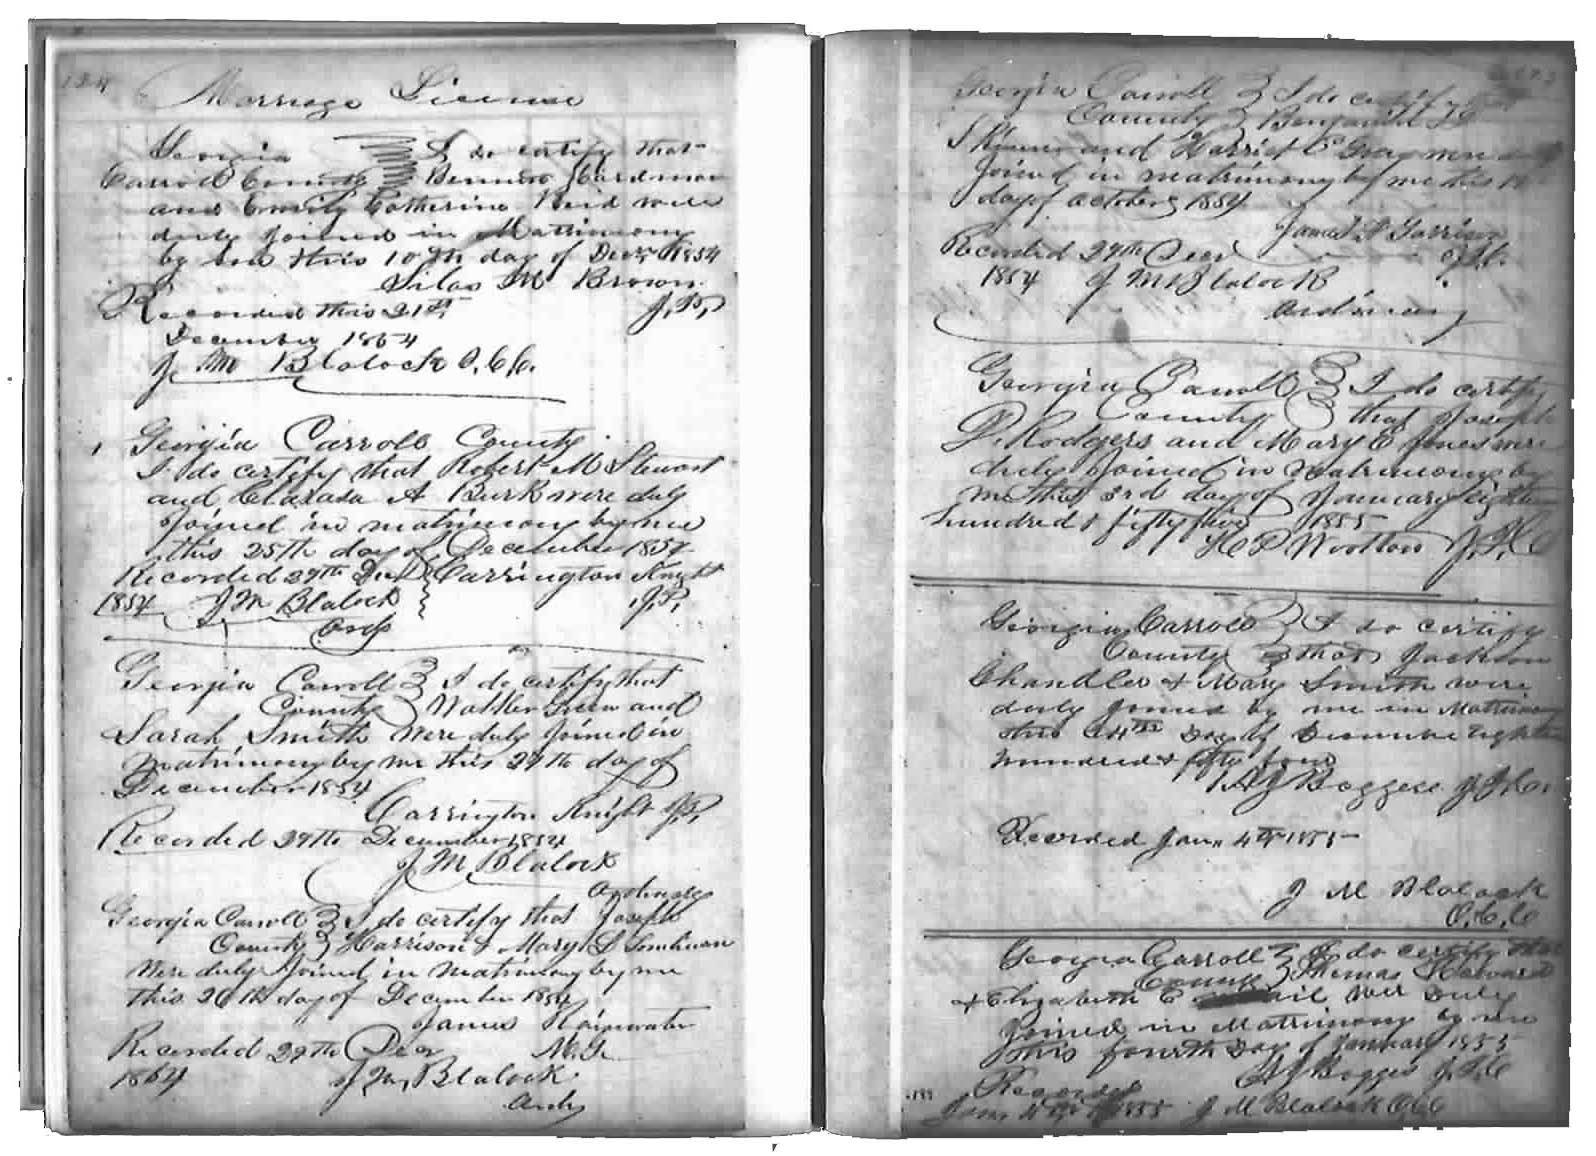 124
Marriage License
Georgia I do certify that
Carroll County Bennett Hardman
and Emily Catherine Reid were
duly joined in Matrimony
by me this 10th day of Decr 1854
Silas M Brown
Recorded this 21st J.P.
December 1854
J M Blalock O.C.C.
Georgia Carroll County
I do certify that Robert M Stewart
and A Burk were duly
joined in matrimony by me
this 25th day of December 1854
Recorded 29th Decr Carrington Knight
1854 J M Blalock J.P.
Ordy
Georgia Carroll I do certify that
County Walker Green and
Sarah Smith were duly joined in
matrimony by me this 27th day of
December 1854
Carrington Knight J.P.
Recorded 29th December 1854
J M Blalock
Ordinary
Georgia Carroll I do certify that Joseph
County Harrison & Mary S
were duly joined in matrimony by me
this 26th day of December 1854
James Rainwater
Recorded 29th Decr M.G.
1854 J M Blalock
Ordy
Georgia Carroll I do certify that
County Benjamin
Skinner and Harriet C Gray were
joined in matrimony by me this
day of October 1854
James Garrison
Recorded 29th Decr J.P.
1854 J M Blalock
Ordinary
Georgia Carroll I do certify
County that Joseph
P. Rodgers and Mary E Jones were
duly joined in matrimony by
me this 3rd day of January eighteen
hundred & fifty five 1855
Wootton J.I.C
Georgia Carroll I do certify
County that Jackson
Chandler & Mary Smith were
duly joined by me in Matrimony
this Day of
hundred & fifty four
A J Boggess J.I.C.
Recorded Jan. 4th 1855
J M Blalock
O.C.C
Georgia Carroll I do certify that
County Thomas
& Elizabeth E were Duly
joined in Matrimony by me
this fourth Day of January 1855
A J Boggess J.I.C
Recorded
Jan. 4th 1855 J M Blalock O.C.C